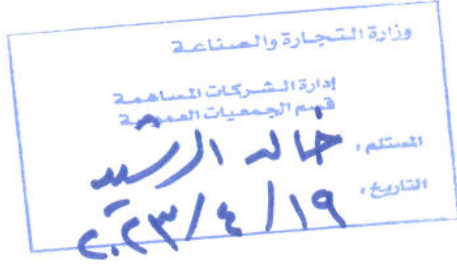 وزارة التجارة والصناعة
إدارة الشركات المساهمة
قسم الجمعيات العمومية
المستلم، خالد الرشيد
التاريخ، ٢٠٢٣/٤/١٩